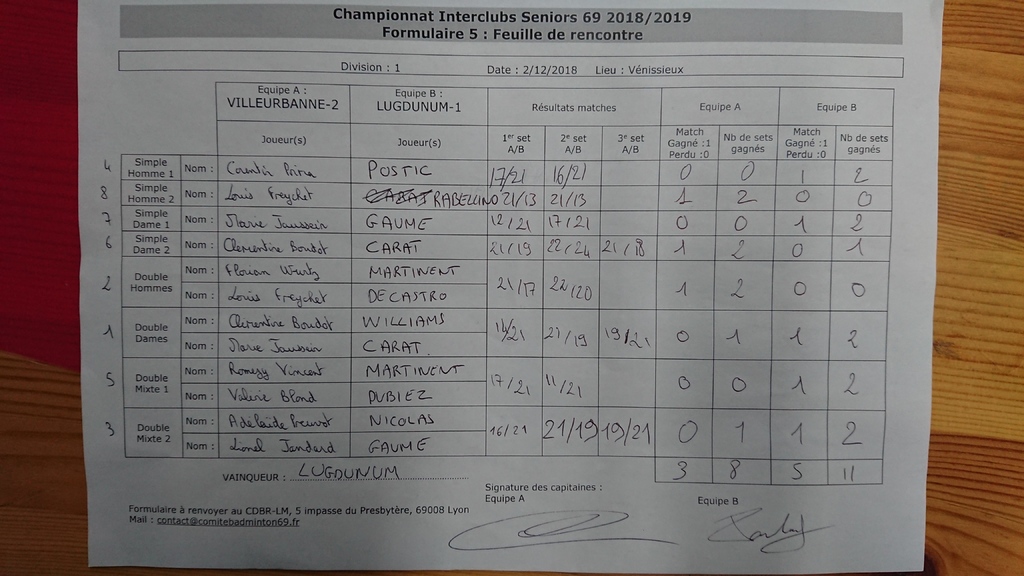 Championnat Interclubs Seniors 69 2018/2019
Formulaire 5 : Feuille de rencontre
Division : 1 Date : 2/12/2018 Lieu : Vénissieux
Equipe A : VILLEURBANNE-2 Equipe B : LUGDUNUM-1 Résultats matches Equipe A Equipe B
Joueur(s) Joueur(s) 1er set A/B 2e set A/B 3e set A/B Match Gagné :1 Perdu :0 Nb de sets gagnés Match Gagné :1 Perdu :0 Nb de sets gagnés
4 Simple Homme 1 Nom : POSTIC 17/21 16/21 0 0 1 2
8 Simple Homme 2 Nom : Louis Freychet RABELLINO 21/13 21/13 1 2 0 0
7 Simple Dame 1 Nom : Marie Jaussein GAUME 12/21 17/21 0 0 1 2
6 Simple Dame 2 Nom : Clementine Boudot CARAT 21/19 22/24 21/18 1 2 0 1
2 Double Hommes Nom : Florian Wurtz MARTINENT 21/17 22/20 1 2 0 0
Nom : Louis Freychet DECASTRO
1 Double Dames Nom : Clementine Boudot WILLIAMS 14/21 21/19 19/21 0 1 1 2
Nom : Marie Jaussein CARAT
5 Double Mixte 1 Nom : Romezy Vincent MARTINENT 17/21 11/21 0 0 1 2
Nom : Valerie Blond DUBIEZ
3 Double Mixte 2 Nom : Adélaïde NICOLAS 16/21 21/19 19/21 0 1 1 2
Nom : Lionel Jandard GAUME
3 8 5 11
VAINQUEUR : LUGDUNUM
Signature des capitaines :
Equipe A Equipe B
Formulaire à renvoyer au CDBR-LM, 5 impasse du Presbytère, 69008 Lyon
Mail : contact@comitebadminton69.fr